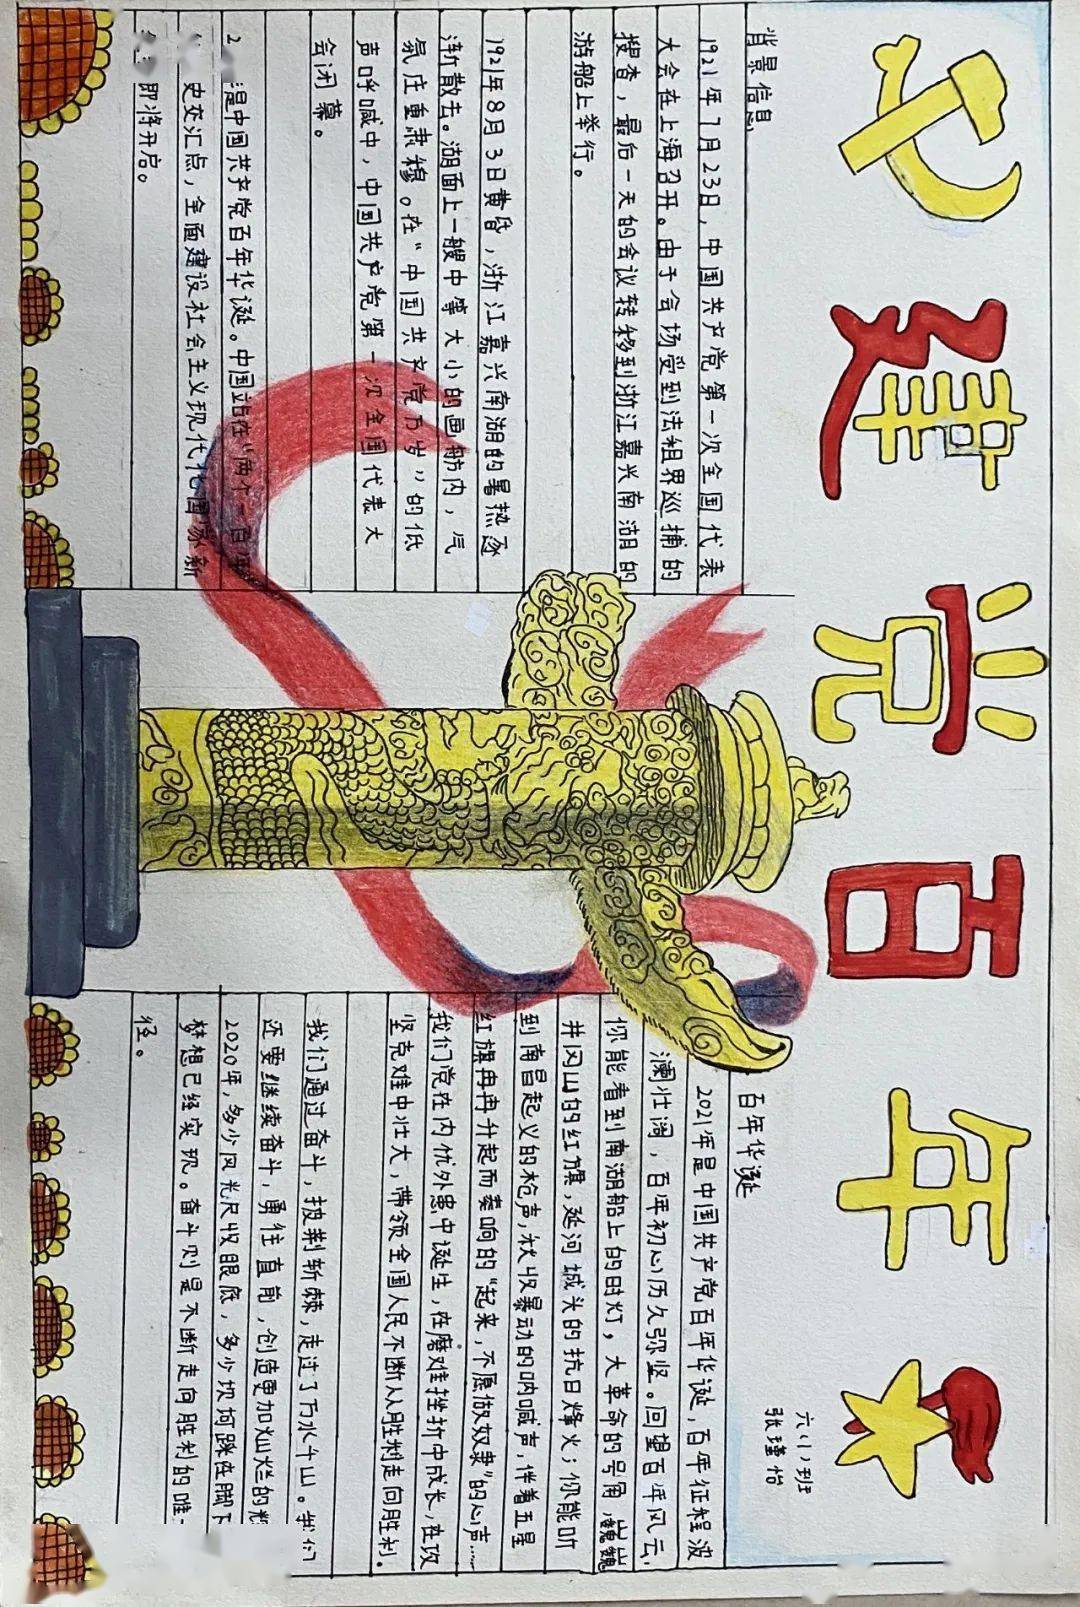 建党百年
六(1)班
张瑾怡
背景信息
1921年7月23日,中国共产党第一次全国代表
大会在上海召开。由于会场受到法租界巡捕的
搜查,最后一天的会议转移到浙江嘉兴南湖的
游船上举行。
1921年8月3日黄昏,浙江嘉兴南湖的暑热逐
渐散去。湖面上一艘中等大小的画舫内,气
氛庄重肃穆。在“中国共产党万岁”的低
声呼喊中,中国共产党第一次全国代表大
会闭幕。
2 是中国共产党百年华诞。中国站在“两个一百年
史交汇点,全面建设社会主义现代化国家新
即将开启。
百年华诞
2021年是中国共产党百年华诞,百年征程波
澜壮阔,百年初心历久弥坚。回望百年风云,
你能看到南湖船上的明灯,大革命的号角,巍巍
井冈山的红旗,延河城头的抗日烽火;你能听
到南昌起义的枪声,秋收暴动的呐喊声,伴着五星
红旗冉冉升起而奏响的“起来,不愿做奴隶”的心声……
我们党在内优外患中诞生,在磨难挫折中成长,在攻
坚克难中壮大,带领全国人民不断从胜利走向胜利。
我们通过奋斗,披荆斩棘,走过了万水千山。我们
还要继续奋斗,勇往直前,创造更加灿烂的
2020年,多少风光尽收眼底,多少坎坷踩在脚下
梦想已经实现。奋斗则是不断走向胜利的唯一
径。